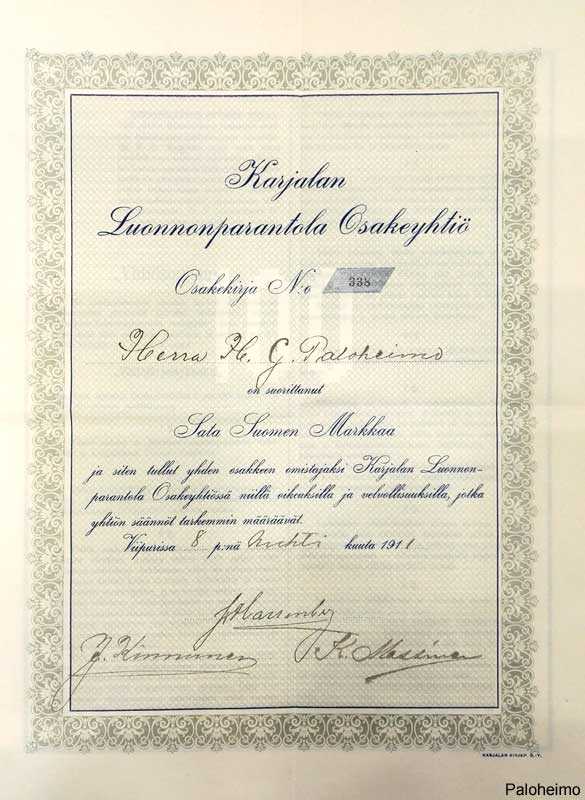 Karjalan
Luonnonparantola Osakeyhtiö
Osakekirja N:o 338
Herra H. G. Paloheimo
on suorittanut
Sata Suomen Markkaa
ja siten tullut yhden osakkeen omistajaksi Karjalan Luonnon-
parantola Osakeyhtiössä niillä oikeuksilla ja velvollisuuksilla, jotka
yhtiön säännöt tarkemmin määräävät.
Viipurissa 8 p:nä huhti kuuta 1911
J. Kinnunen K.
KARJALAN KIRJAP. O.-Y.
Paloheimo